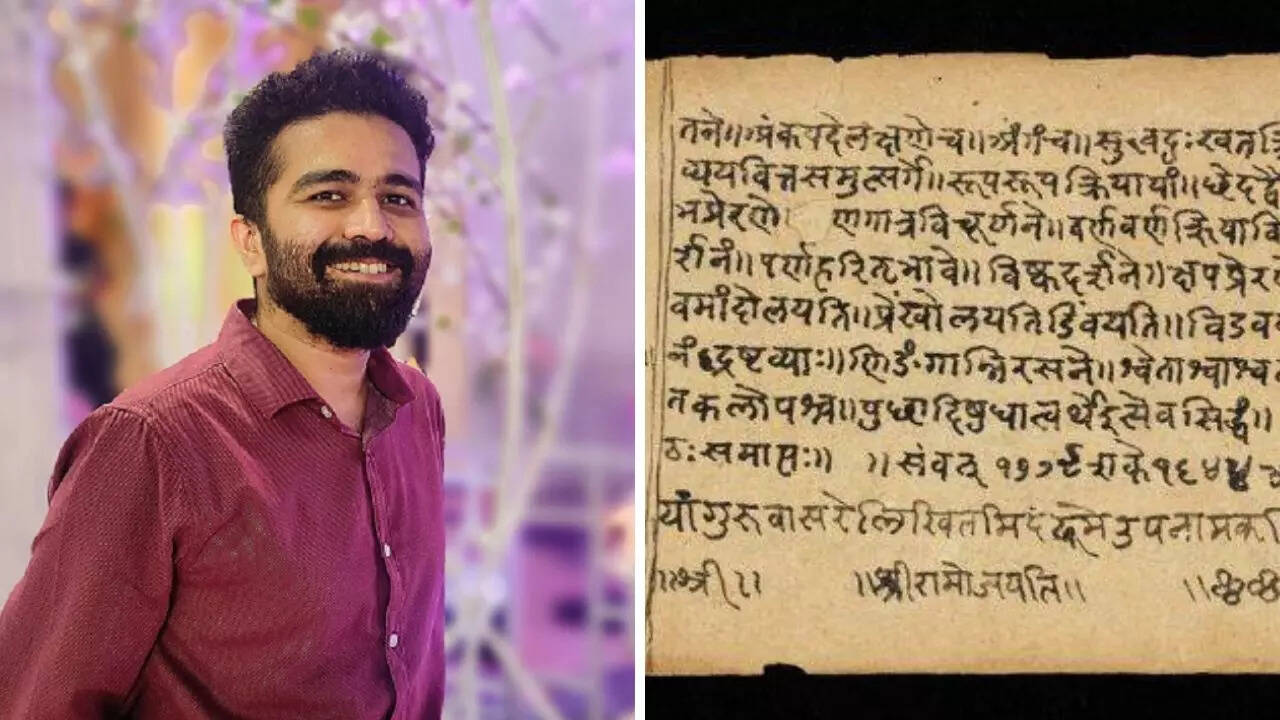 तने॥अंकपदेलक्षणेच॥अंगंच॥सुखदुःखतत्क्रि
व्ययवित्तसमुत्सर्गे॥रूपरूपक्रियायां॥छेदद्वै
भप्रेरणे। णगात्रविचूर्णने॥वर्णवर्णक्रियावि
र्शनं॥पर्णहरितभावे॥विष्कदर्शने॥क्षपप्रेर
वमांदोलयति॥प्रेंखोलयतिडिंवयति॥विडव
नंद्रष्टव्याः॥णिङंगान्निरसने॥श्वेताश्वाश्व
तकलोपश्च॥पुछादिषुधात्वर्थेइत्येवसिद्धं॥
ठःसमाप्तः॥ ॥संवत् १७७९शके१६४४
यांगुरुवासरेलिखितमिदं उपनामक
॥श्री॥ ॥श्रीरामोजयति॥